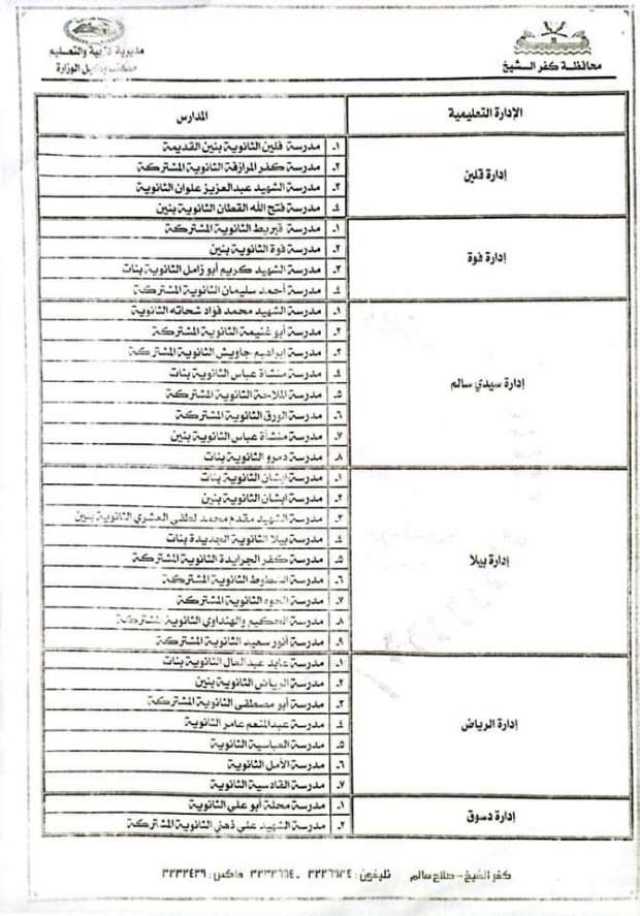 محافظة كفر الشيخ
مديرية التربية والتعليم
مكتب وكيل الوزارة
الإدارة التعليمية
المدارس
إدارة قلين
١. مدرسة قلين الثانوية بنين القديمة
٢. مدرسة كفر المرازقة الثانوية المشتركة
٣. مدرسة الشهيد عبدالعزيز علوان الثانوية
٤. مدرسة فتح الله القطان الثانوية بنين
إدارة فوة
١. مدرسة قبريط الثانوية المشتركة
٢. مدرسة فوة الثانوية بنين
٣. مدرسة الشهيد كريم أبو زامل الثانوية بنات
٤. مدرسة أحمد سليمان الثانوية المشتركة
إدارة سيدي سالم
١. مدرسة الشهيد محمد فؤاد شحاته الثانوية
٢. مدرسة أبو غنيمة الثانوية المشتركة
٣. مدرسة ابراهيم جاويش الثانوية المشتركة
٤. مدرسة منشاة عباس الثانوية بنات
٥. مدرسة الملاحة الثانوية المشتركة
٦. مدرسة الورق الثانوية المشتركة
٧. مدرسة منشأة عباس الثانوية بنين
٨. مدرسة دمرو الثانوية بنات
إدارة بيلا
١. مدرسة ابشان الثانوية بنات
٢. مدرسة ابشان الثانوية بنين
٣. مدرسة الشهيد مقدم محمد لطفى العشري الثانوية بنين
٤. مدرسة بيلا الثانوية الجديدة بنات
٥. مدرسة كفر الجرايدة الثانوية المشتركة
٦. مدرسة الثانوية المشتركة
٧. مدرسة الثانوية المشتركة
٨. مدرسة الحكيم والهنداوي الثانوية المشتركة
٩. مدرسة أنور سعيد الثانوية المشتركة
إدارة الرياض
١. مدرسة عابد عبد العال الثانوية بنات
٢. مدرسة الرياض الثانوية بنين
٣. مدرسة أبو مصطفى الثانوية المشتركة
٤. مدرسة عبدالمنعم عامر الثانوية
٥. مدرسة العباسية الثانوية
٦. مدرسة الأمل الثانوية
٧. مدرسة القادسية الثانوية
إدارة دسوق
١. مدرسة محلة أبو على الثانوية
٢. مدرسة الشهيد على ذهني الثانوية المشتركة
كفر الشيخ - صلاح سالم تليفون: ٣٢٣٢٦٦٤ فاكس: ٣٢٣٢٤٣٩